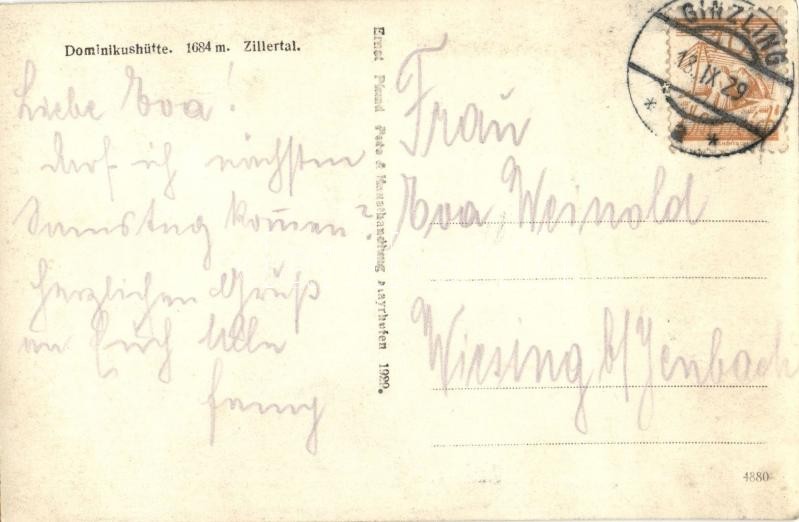 Dominikushütte. 1684 m. Zillertal.
Liebe Eva!
darf ich nächsten
Samstag kommen?
herzlichen Gruß
an Euch Alle
Ernst Pfund Foto & Kunsthandlung Mayrhofen 1929.
GINZLING
13. IX 29
Frau
Eva Weinold
Wiesing b/Jenbach
4880